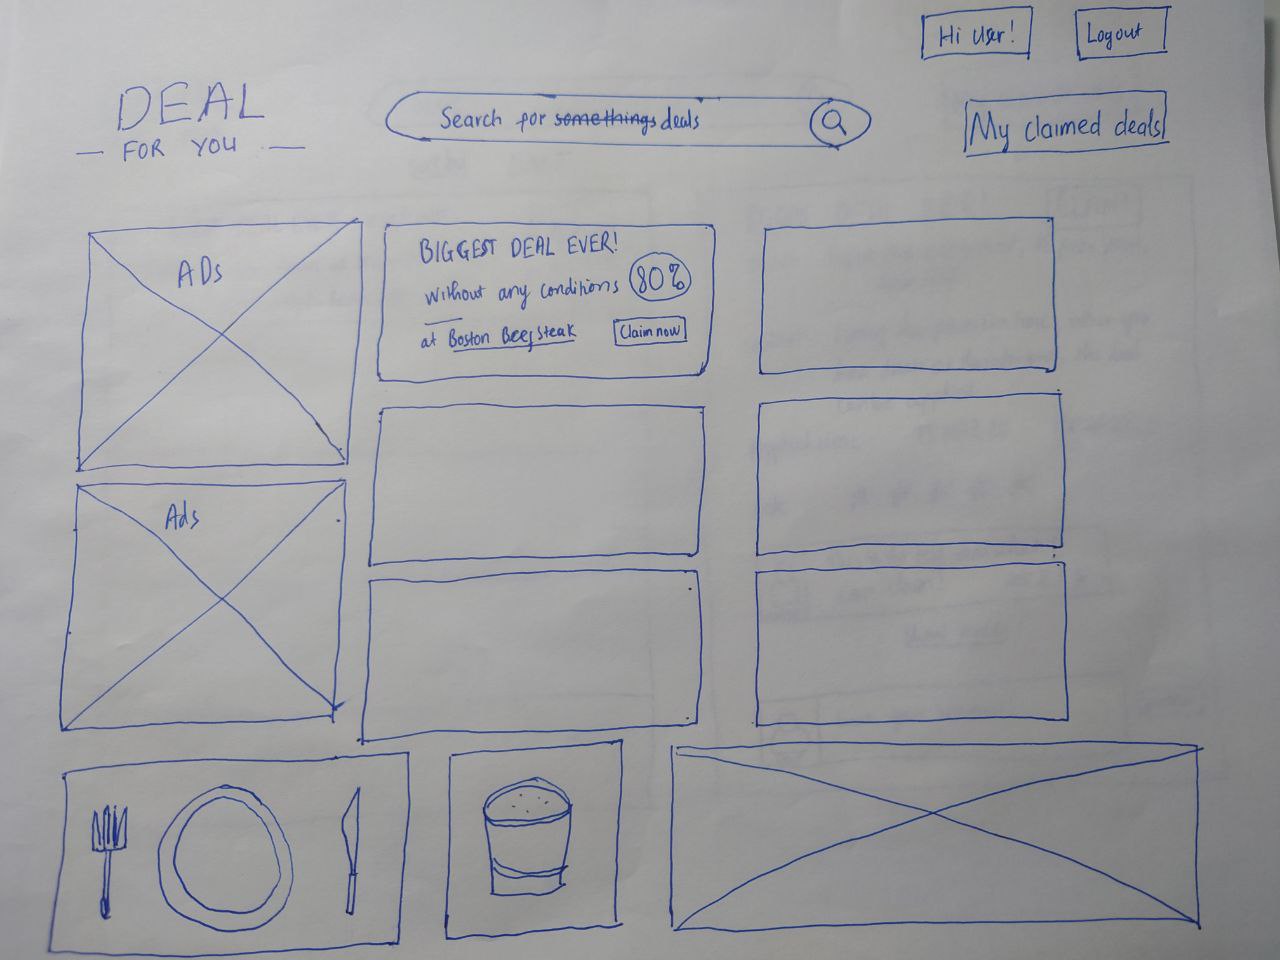 Hi User!
Logout
DEAL
— FOR YOU —
Search for somethings deals
My claimed deals
ADs
BIGGEST DEAL EVER!
Without any conditions
80%
at Boston Beefsteak
Claim now
Ads